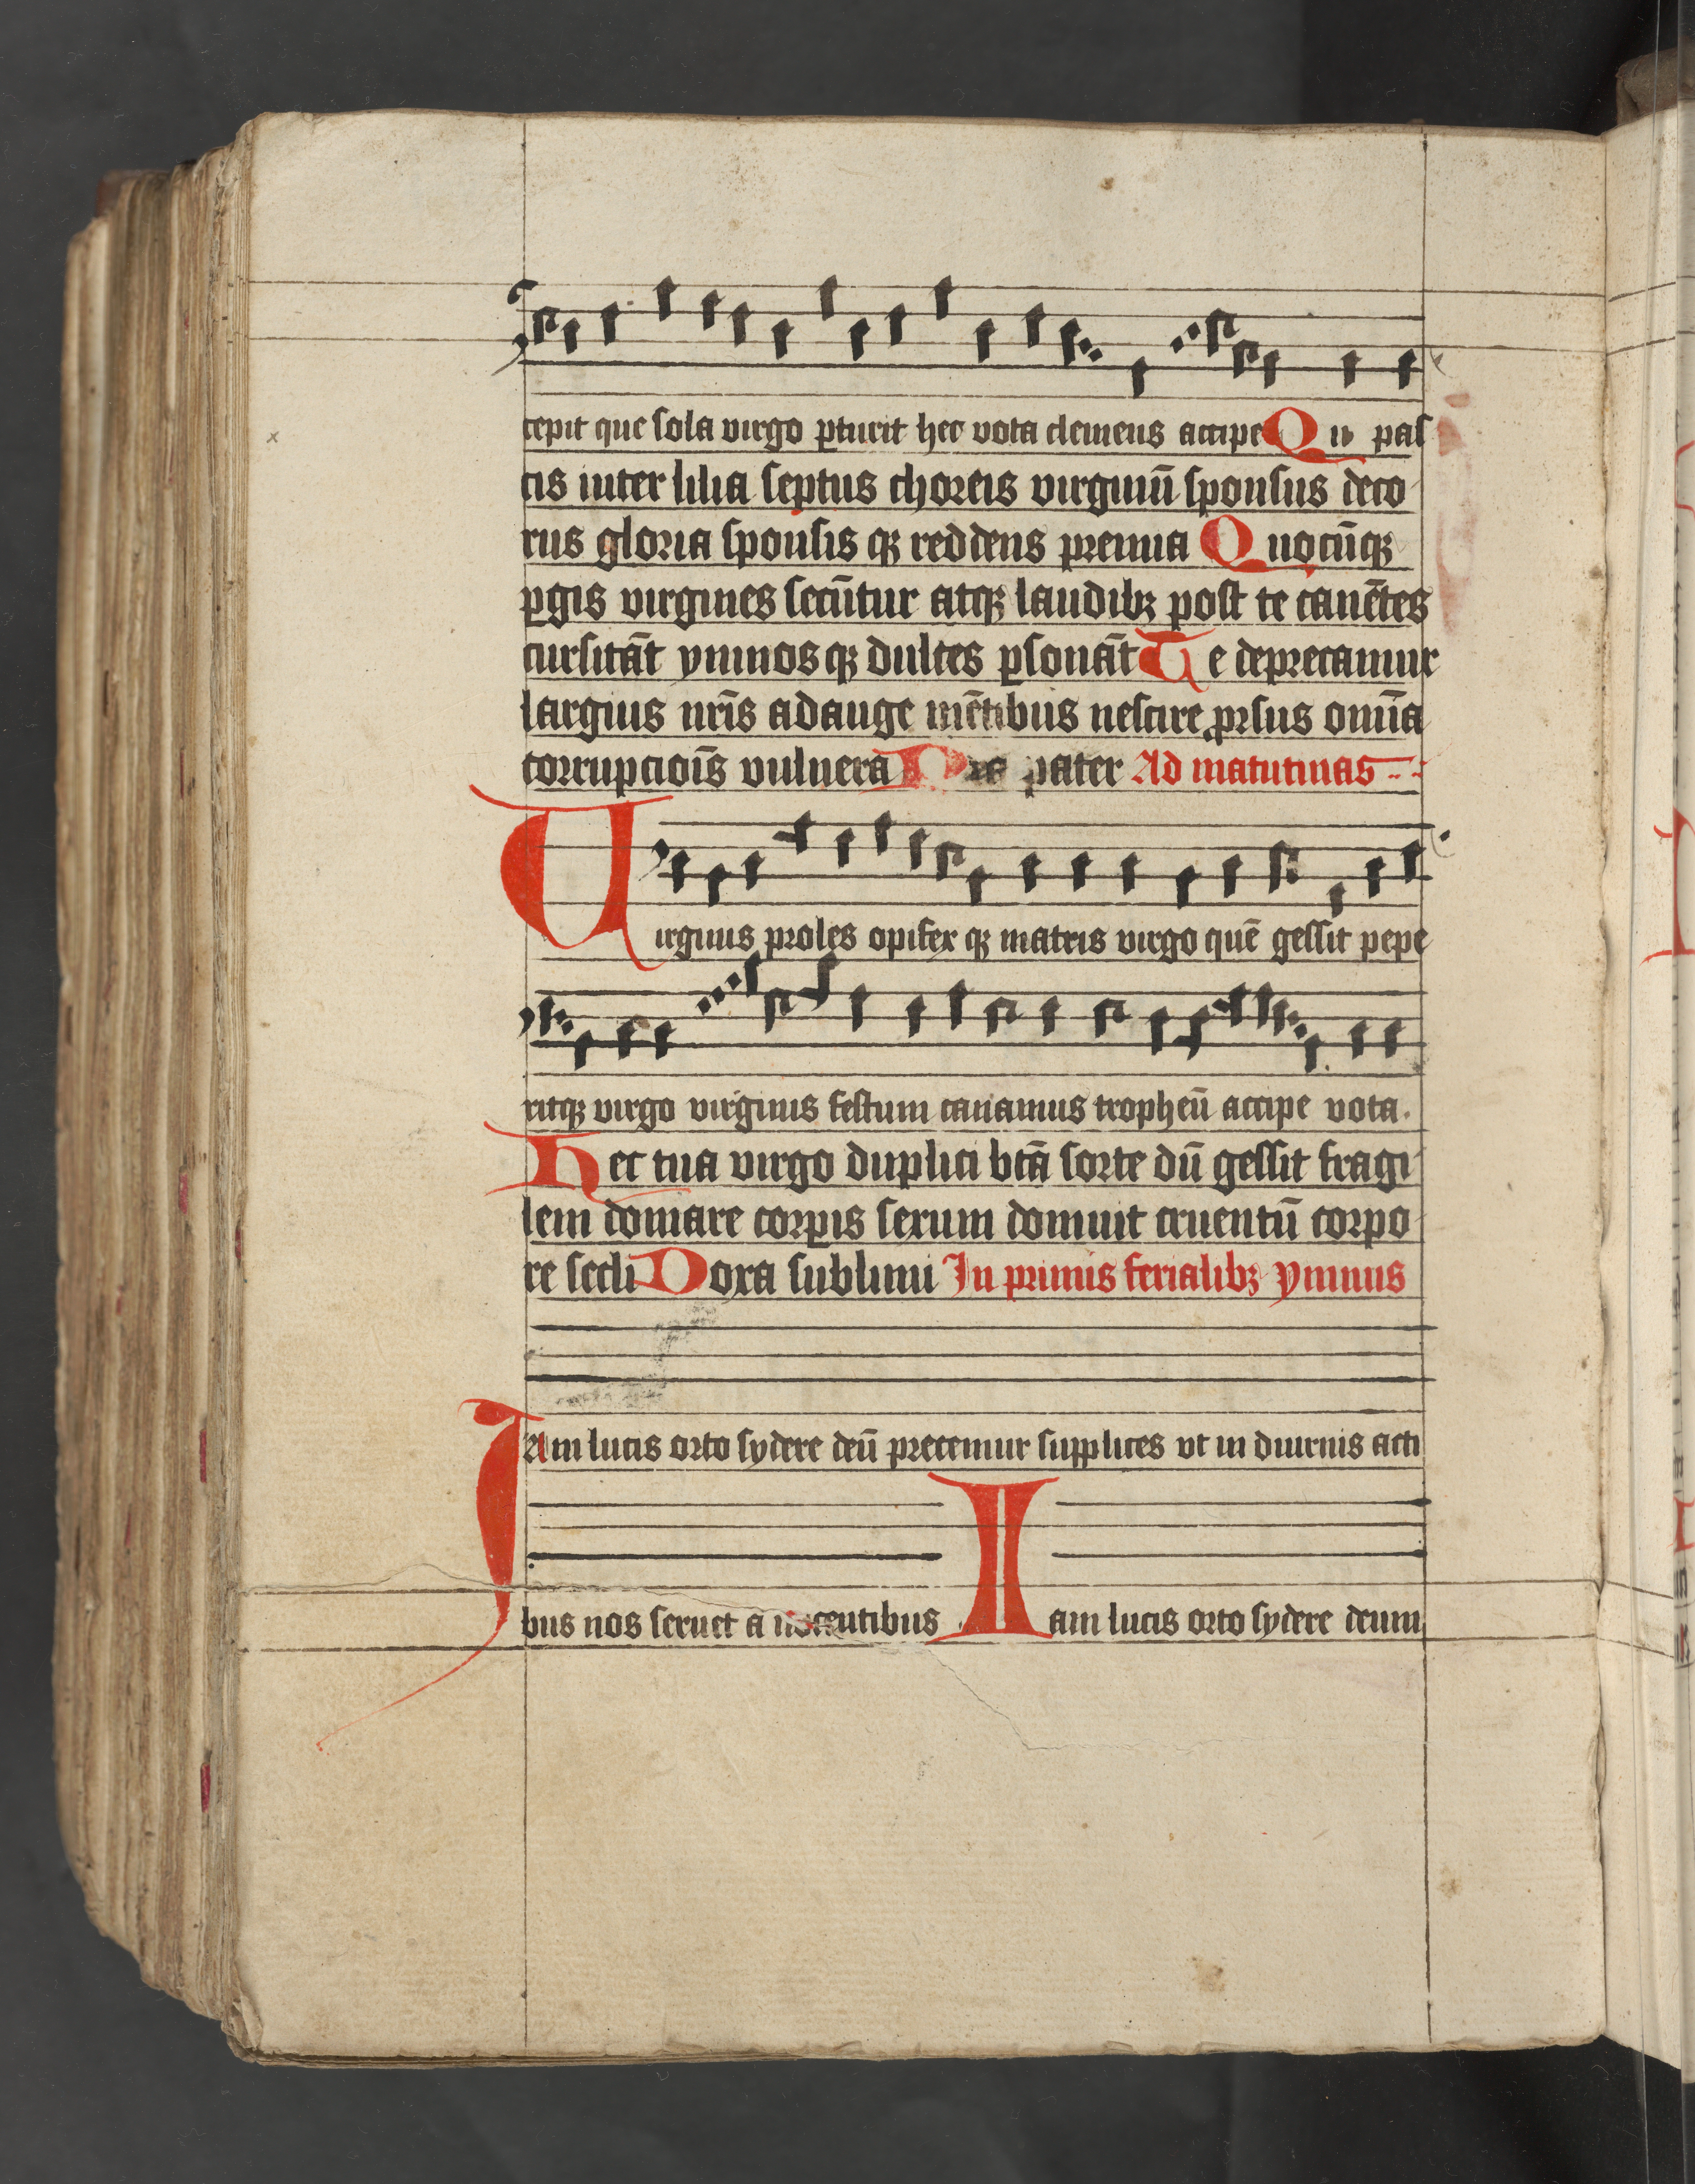 cepit que sola virgo ꝑturit hec vota clemens accipe Qui pas
cis inter lilia septus choreis virginū sponsus deco
rus gloria sponsis qꝫ reddens premia Quocūqꝫ
ꝑgis virgines secūtur atqꝫ laudibꝫ post te canētes
cursitāt ymnosqꝫ dulces ꝑsonāt Te deprecamur
largius nr̄is adauge mētibus nescire ꝓrsus om̄ia
corrupcioīs vulnera pater Ad matutinas
Virginis proles opifex qꝫ matris virgo quē gessit pepe
ritqꝫ virgo virginis festum canamus tropheū accipe vota.
Hec tua virgo duplici btā sorte dū gessit fragi
lem domare corꝑis sexum domuit cruentū corpo
re secli Doxa sublimi In primis ferialibꝫ ymnus
Jam lucis orto sydere deū precemur supplices vt in diurnis acti
bus nos seruet a nocentibus Iam lucis orto sydere deum